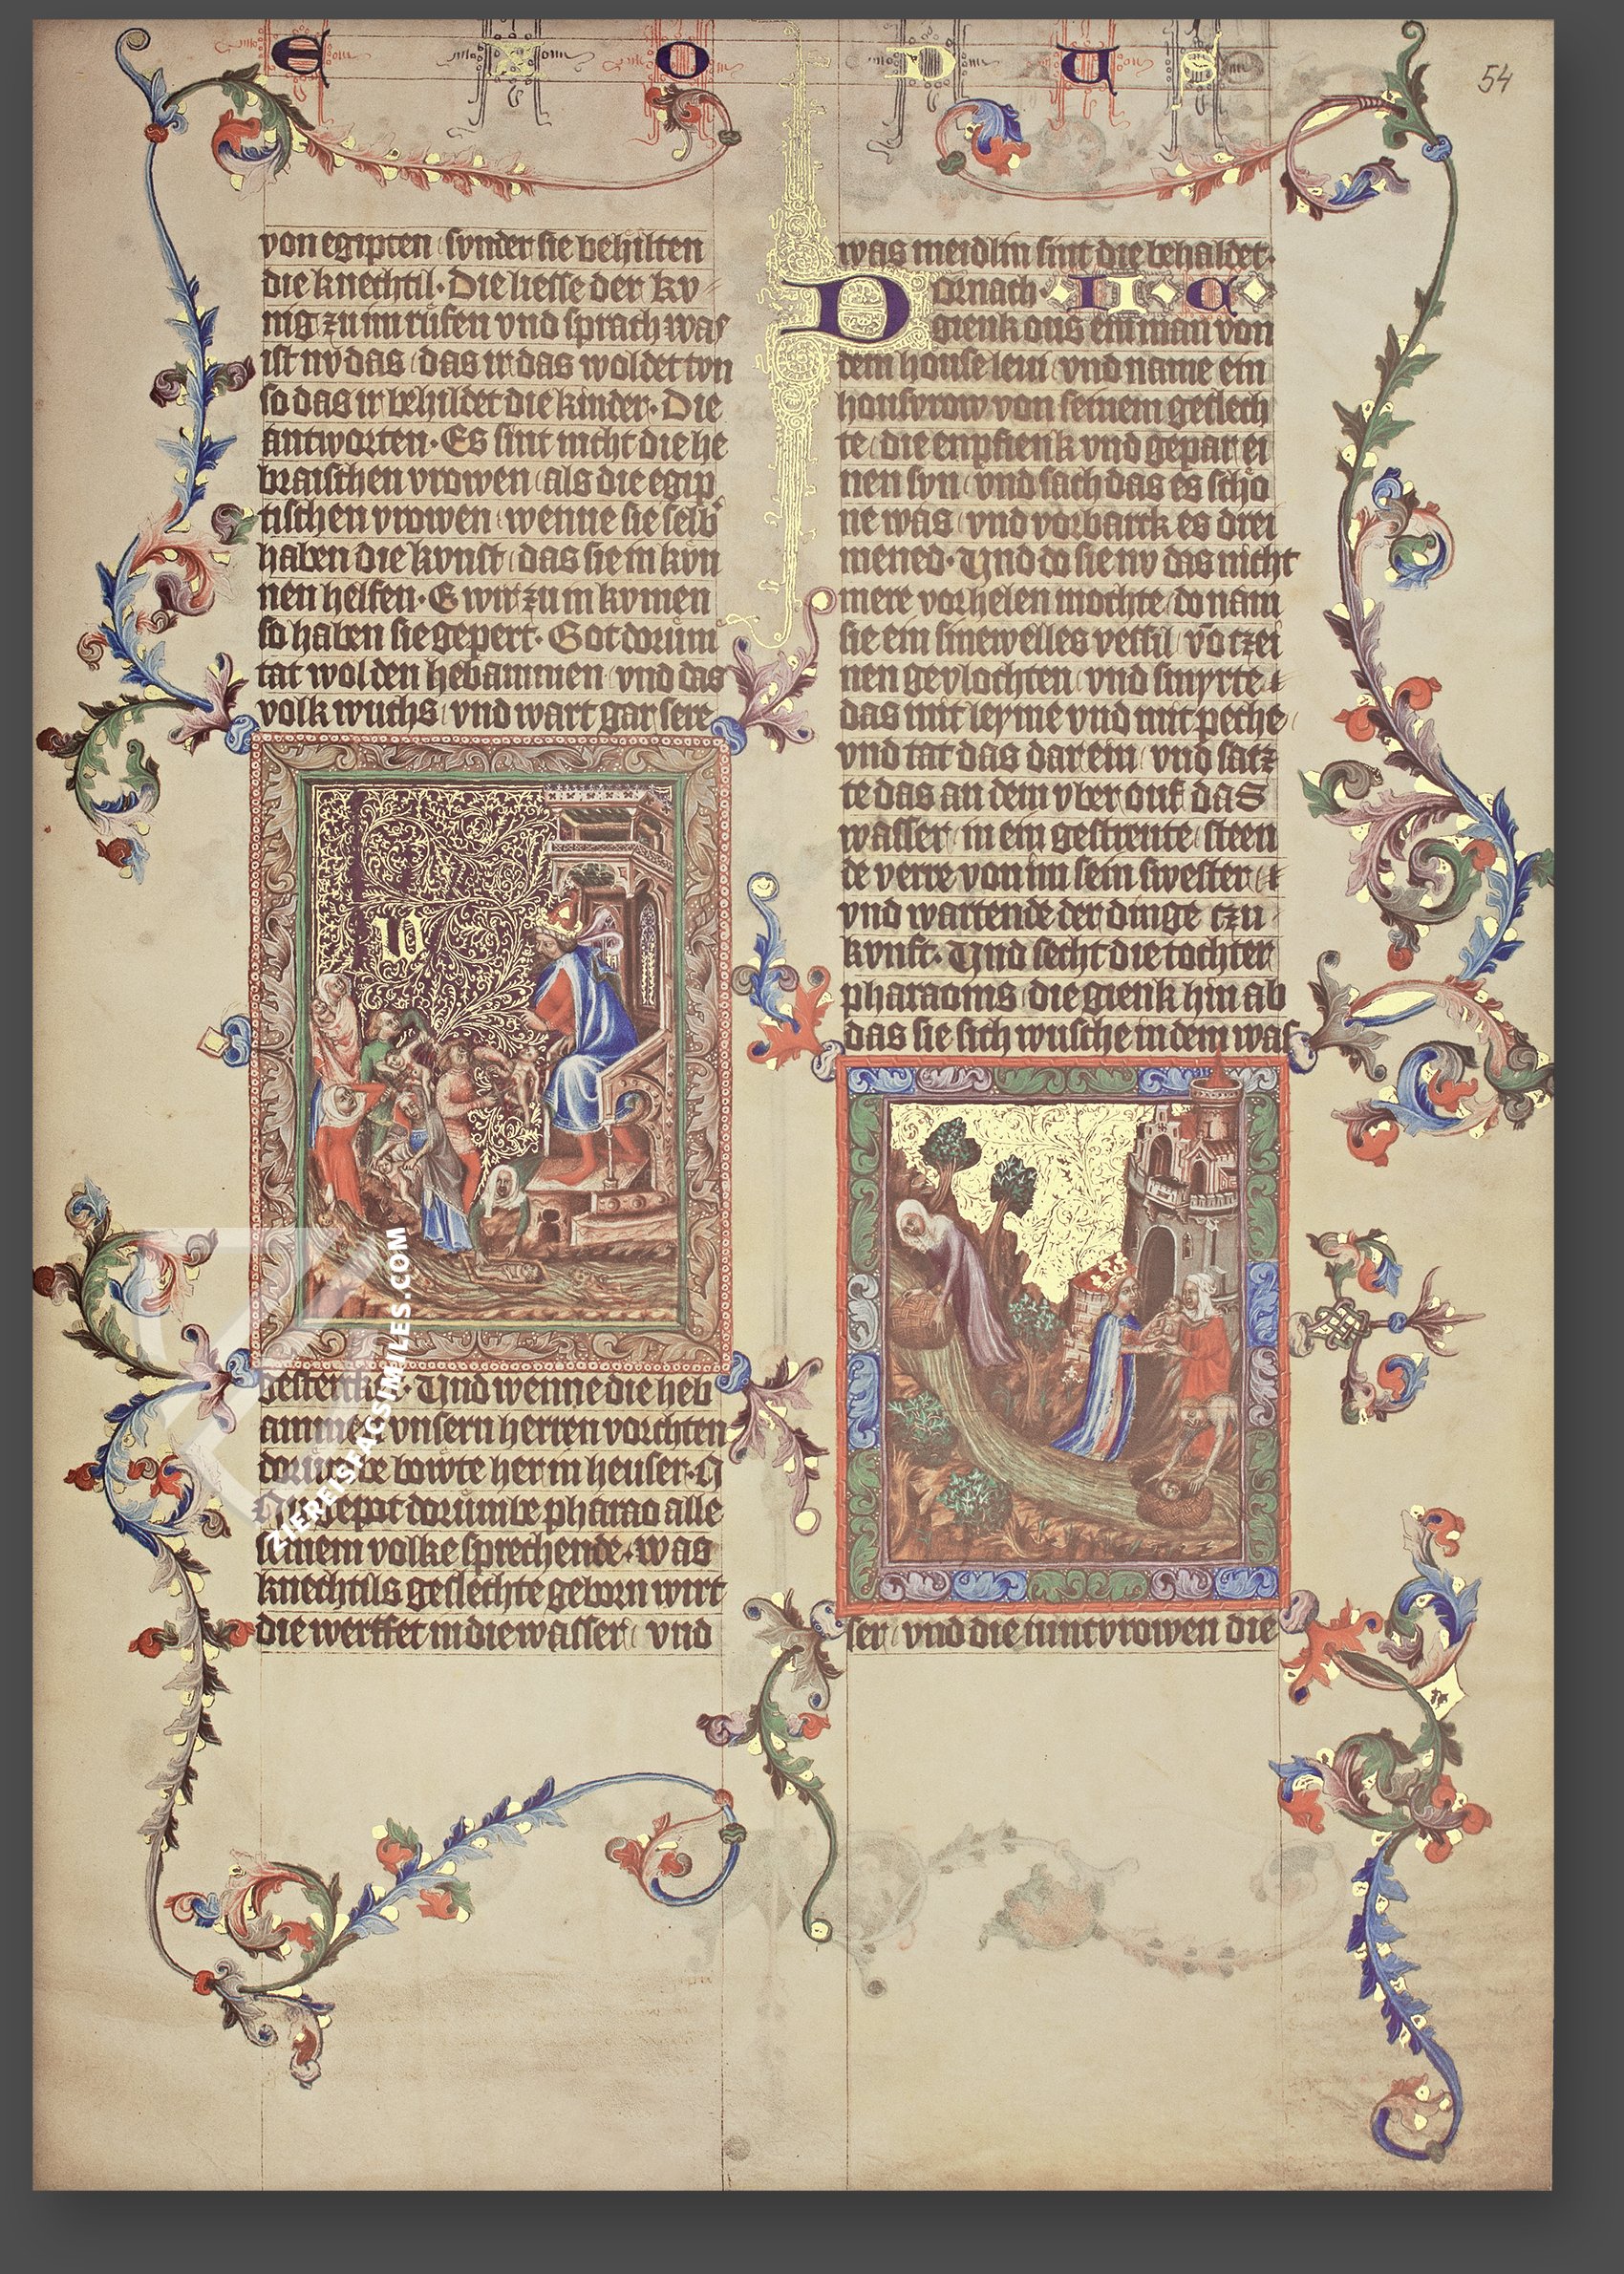 E X O D U S
54
von egipten sunder sie behilten
die knechtil· Die liesse der kv
nig zu im rufen vnd sprach was
ist nv das das ir das woldet tvn
so das ir behildet die kinder· Die
antworten· Es sint nicht die he
braischen vrowen als die egip
tischen vrowen wenne sie selb
haben die kvnst das sie in kvn
nen helfen· E wir zu in kvmen
so haben sie gepert· Got dorum
tat wol den hebammen vnd das
volk wuchs vnd wart gar sere
W
gesterket· Vnd wenne die heb
ammen vnsern herren vorchten
dorumbe bowte her in heuser·
gepot dorumbe pharao alle
seinem volke sprechende· was
knechtils geslechte geborn wirt
die werffet in die wasser vnd
was meidlin sint die behaldet·
Dornach· II· C
gienk ous ein man von
dem house leui vnd name ein
housvrow von seinem geslech
te die enpfienk vnd gepar ei
nen svn vnd sach das es scho
ne was vnd vorbarck es drei
moned· Vnd do sie nv das nicht
mere vorhelen mochte do nam
sie ein sinewelles vessil vo tzei
nen gevlochten vnd smyrte
das mit leyme vnd mit peche
vnd tat das darein vnd satz
te das an dem vber ouf das
wasser in ein gestreute steen
de verre von im sein swester
vnd wartende der dinge czu
kvnft· Vnd secht die tochter
pharaonis die gienk hin ab
das sie sich wusche in dem was
ser vnd die iuncvrowen die
ZIEREISFACSIMILES.COM